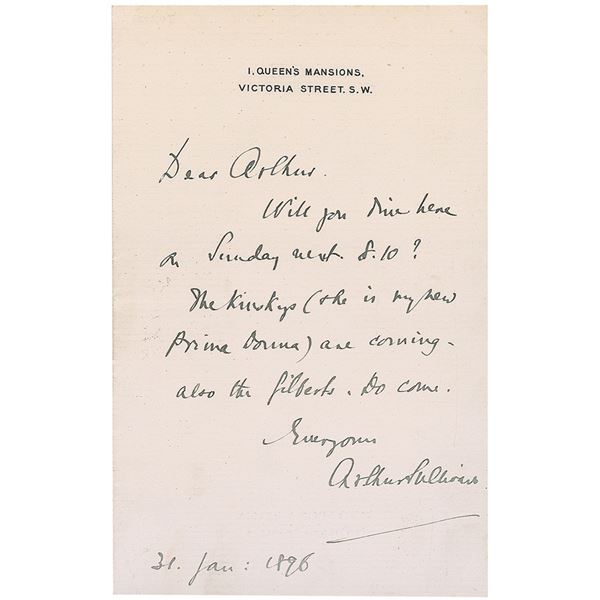 1, QUEEN'S MANSIONS,
VICTORIA STREET. S.W.
Dear Arthur.
Will you dine here
on Sunday next. 8.10?
The Kinskys (she is my new
Prima Donna) are coming -
also the Gilberts. Do come.
Ever yours
Arthur Sullivan
31. Jan: 1896